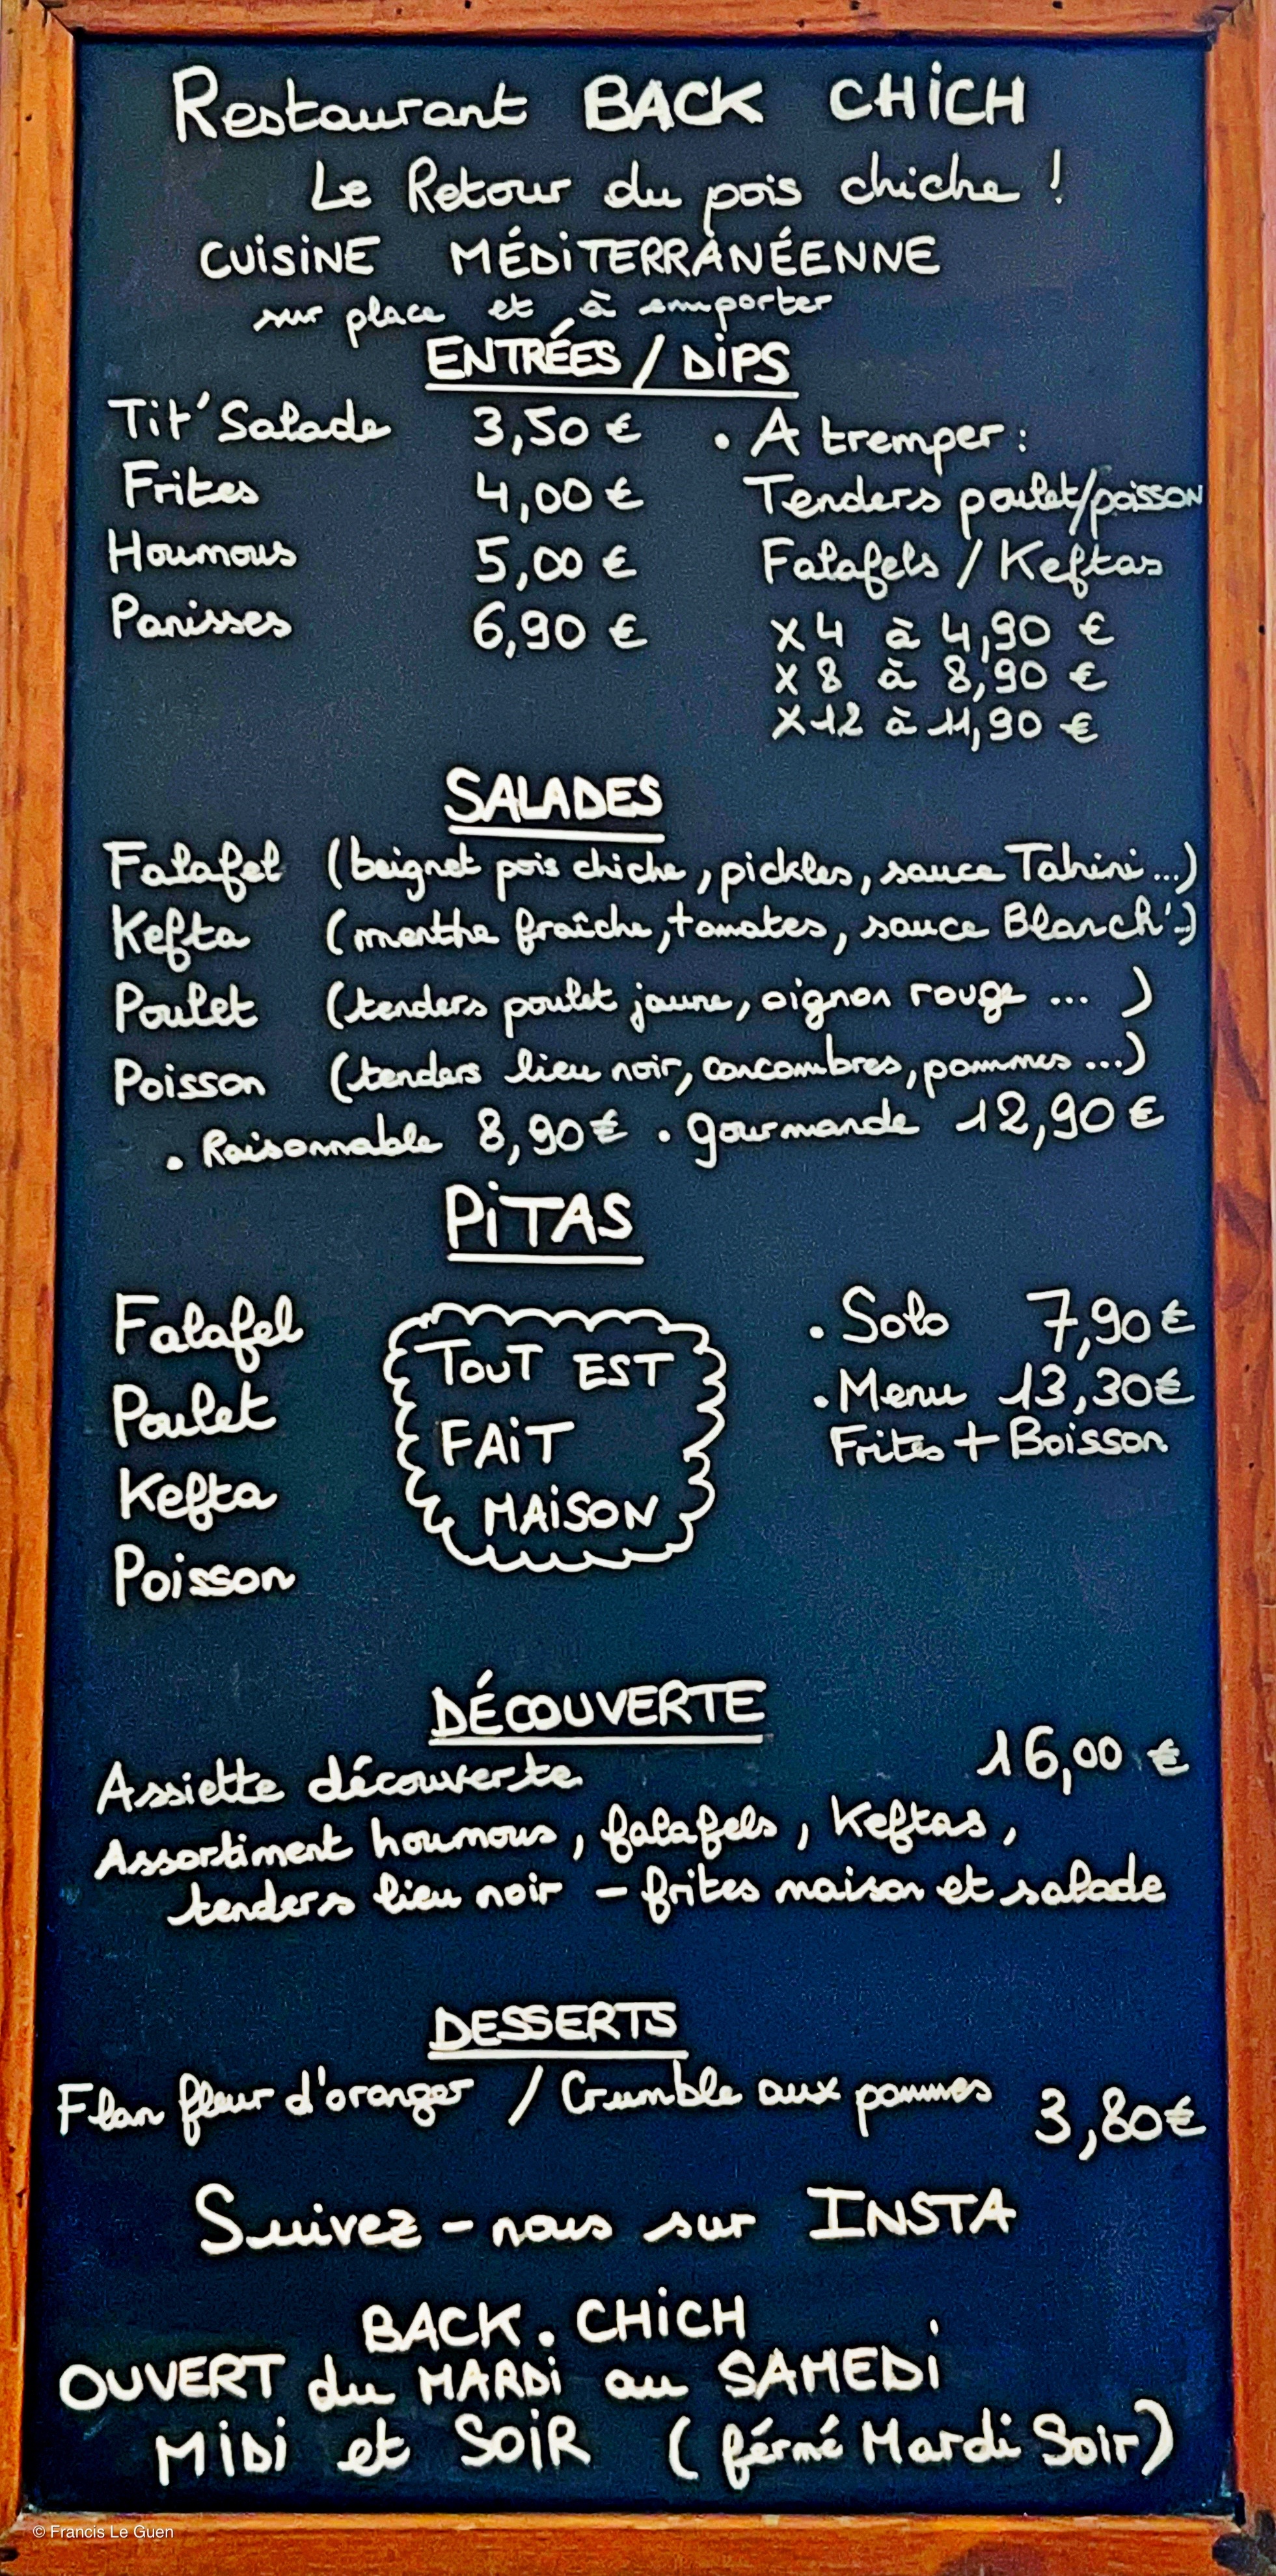 Restaurant BACK CHiCH
Le Retour du pois chiche !
CUiSiNE MÉDiTERRANÉENNE
sur place et à emporter
ENTRÉES / DiPS
Tit' Salade 3,50 € • A tremper :
Frites 4,00 € Tenders poulet/poisson
Houmous 5,00 € Falafels / Keftas
Panisses 6,90 € x 4 à 4,90 €
x 8 à 8,90 €
x 12 à 11,90 €
SALADES
Falafel (beignet pois chiche, pickles, sauce Tahini ...)
Kefta (menthe fraîche, tomates, sauce Blanch'...)
Poulet (tenders poulet jaune, oignon rouge ... )
Poisson (tenders lieu noir, concombres, pommes ...)
• Raisonnable 8,90 € • gourmande 12,90 €
PiTAS
Falafel • Solo 7,90 €
Poulet • Menu 13,30 €
Frites + Boisson
Kefta
Poisson
TOUT EST
FAiT
MAiSON
DÉCOUVERTE
Assiette découverte 16,00 €
Assortiment houmous, falafels, Keftas,
tenders lieu noir - frites maison et salade
DESSERTS
Flan fleur d'oranger / Crumble aux pommes 3,80 €
Suivez - nous sur INSTA
BACK . CHiCH
OUVERT du MARDi au SAMEDi
MiDi et SOiR ( férmé Mardi Soir)
© Francis Le Guen